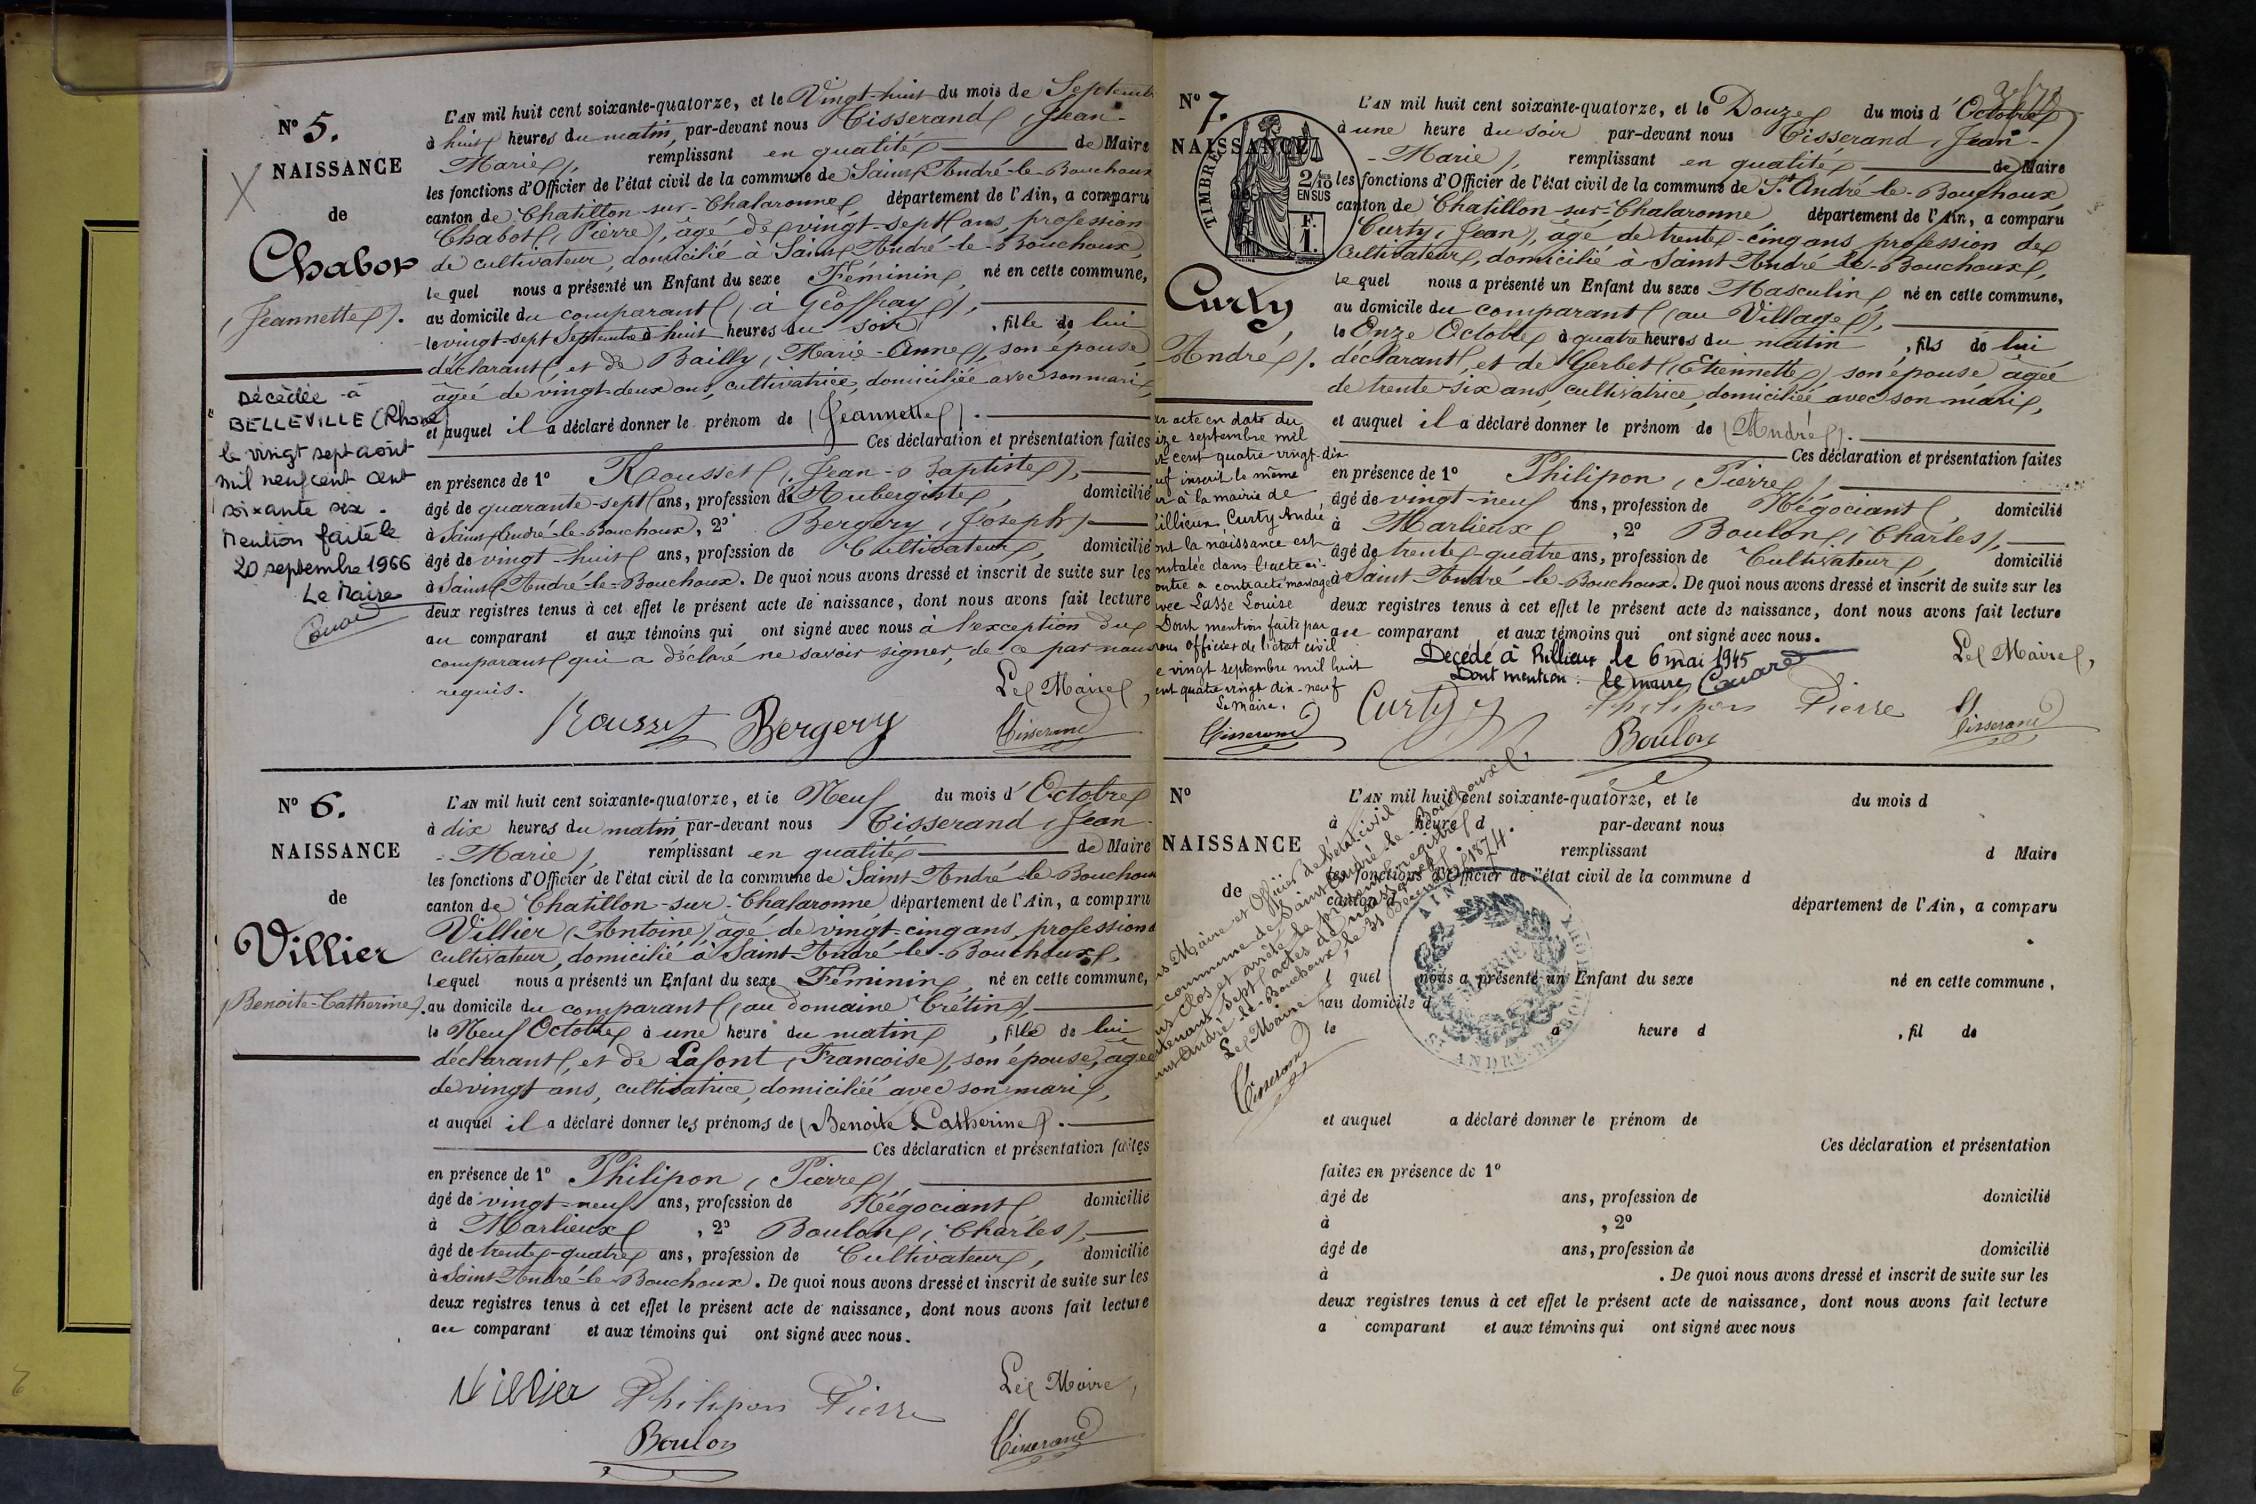 N° 5.
NAISSANCE
de
Chabot
(Jeannette).
Décédée à
BELLEVILLE (Rhone)
le vingt sept août
mil neuf cent
soixante six.
Mention faite le
20 septembre 1966
Le Maire
L'AN mil huit cent soixante-quatorze, et le Vingt-huit du mois de Septemb
à huit heures du matin, par-devant nous Tisserand (Jean-
-Marie), remplissant en qualité de Maire
les fonctions d'Officier de l'état civil de la commune de Saint André-le-Bouchoux
canton de Chatillon-sur-Chalaronne département de l'Ain, a comparu
Chabot (Pierre), âgé de vingt-sept ans, profession
de cultivateur, domicilié à Saint André-le-Bouchoux,
lequel nous a présenté un Enfant du sexe Féminin, né en cette commune,
au domicile du comparant (à Géoffray),
le vingt-sept Septembre à huit heures du soir, fille de lui
déclarant, et de Bailly (Marie-Anne), son épouse
âgée de vingt-deux ans, cultivatrice, domiciliée avec son mari,
et auquel il a déclaré donner le prénom de (Jeannette).
Ces déclaration et présentation faites
en présence de 1° Rousset (Jean-Baptiste),
âgé de quarante-sept ans, profession d'Aubergiste, domicilié
à Saint André-le-Bouchoux, 2° Bergery (Joseph)
âgé de vingt-huit ans, profession de Cultivateur, domicilié
à Saint André-le-Bouchoux. De quoi nous avons dressé et inscrit de suite sur les
deux registres tenus à cet effet le présent acte de naissance, dont nous avons fait lecture
au comparant et aux témoins qui ont signé avec nous à l'exception du
comparant qui a déclaré ne savoir signer, de ce par nous
requis.
Le Maire,
Rousset Bergery Tisserand
N° 6.
NAISSANCE
de
Villier
(Benoite-Catherine).
L'AN mil huit cent soixante-quatorze, et le Neuf du mois d'Octobre
à dix heures du matin, par-devant nous Tisserand (Jean-
-Marie), remplissant en qualité de Maire
les fonctions d'Officier de l'état civil de la commune de Saint-André-le-Bouchoux
canton de Chatillon-sur-Chalaronne département de l'Ain, a comparu
Villier (Antoine) âgé de vingt-cinq ans, profession d
cultivateur, domicilié à Saint-André-le-Bouchoux,
lequel nous a présenté un Enfant du sexe Féminin, né en cette commune,
au domicile du comparant (au domaine Crétin),
le Neuf Octobre à une heure du matin, fille de lui
déclarant, et de Lafont (Francoise), son épouse, âgée
de vingt ans, cultivatrice, domiciliée avec son mari,
et auquel il a déclaré donner les prénoms de (Benoite Catherine).
Ces déclaration et présentation faites
en présence de 1° Philipon (Pierre),
âgé de vingt-neuf ans, profession de Négociant, domicilié
à Marlieux, 2° Boulon (Charles),
âgé de trente-quatre ans, profession de Cultivateur, domicilié
à Saint-André-le-Bouchoux. De quoi nous avons dressé et inscrit de suite sur les
deux registres tenus à cet effet le présent acte de naissance, dont nous avons fait lecture
au comparant et aux témoins qui ont signé avec nous.
Le Maire,
Villier Philipon Pierre
Boulon Tisserand
N° 7.
NAISSANCE
TIMBRE
2/10
EN SUS
F.
1.
Curty
(André).
acte en date du
septembre mil
cent quatre-vingt-dix
inscrit le même
à la mairie de
Rillieux Curty André
ont la naissance est
constatée dans l'acte ci-
contre a contracté mariage
avec Lasse Louise
Dont mention faite par
nous officier de l'état civil
le vingt septembre mil huit
cent quatre vingt dix-neuf
Le Maire.
Tisserand
L'AN mil huit cent soixante-quatorze, et le Douze du mois d'Octobre
à une heure du soir par-devant nous Tisserand (Jean-
-Marie), remplissant en qualité de Maire
les fonctions d'Officier de l'état civil de la commune de St André-le-Bouchoux
canton de Chatillon-sur-Chalaronne département de l'Ain, a comparu
Curty (Jean), âgé de trente-cinq ans, profession de
Cultivateur, domicilié à Saint-André-le-Bouchoux,
lequel nous a présenté un Enfant du sexe Masculin, né en cette commune,
au domicile du comparant (au Village),
le Onze Octobre à quatre heures du matin, fils de lui
déclarant, et de Gerbet (Etiennette) son épouse âgée
de trente-six ans, cultivatrice, domiciliée avec son mari,
et auquel il a déclaré donner le prénom de (André).
Ces déclaration et présentation faites
en présence de 1° Philipon (Pierre)
âgé de vingt-neuf ans, profession de Négociant, domicilié
à Marlieux, 2° Boulon (Charles),
âgé de trente-quatre ans, profession de Cultivateur, domicilié
à Saint-André-le-Bouchoux. De quoi nous avons dressé et inscrit de suite sur les
deux registres tenus à cet effet le présent acte de naissance, dont nous avons fait lecture
au comparant et aux témoins qui ont signé avec nous.
Décédé à Rillieux le 6 mai 1945
Dont mention : le maire
Le Maire,
Curty Philipon Pierre Tisserand
Boulon
N°
NAISSANCE
de
Maire et Officier de l'état civil
commune de Saint André-le-Bouchoux,
clos et arrêté le présent registre
contenant sept actes de naissance.
Saint André-le-Bouchoux, le 31 Décembre 1874.
Le Maire
Tisserand
AIN
MAIRIE
ST ANDRÉ-LE-BOUCHOUX
L'AN mil huit cent soixante-quatorze, et le du mois d
à heure d par-devant nous
remplissant d Maire
les fonctions d'Officier de l'état civil de la commune d
canton d département de l'Ain, a comparu
l quel nous a présenté un Enfant du sexe né en cette commune,
au domicile d
le à heure d , fil de
et auquel a déclaré donner le prénom de
Ces déclaration et présentation
faites en présence de 1°
âgé de ans, profession de domicilié
à , 2°
âgé de ans, profession de domicilié
à . De quoi nous avons dressé et inscrit de suite sur les
deux registres tenus à cet effet le présent acte de naissance, dont nous avons fait lecture
a comparant et aux témoins qui ont signé avec nous